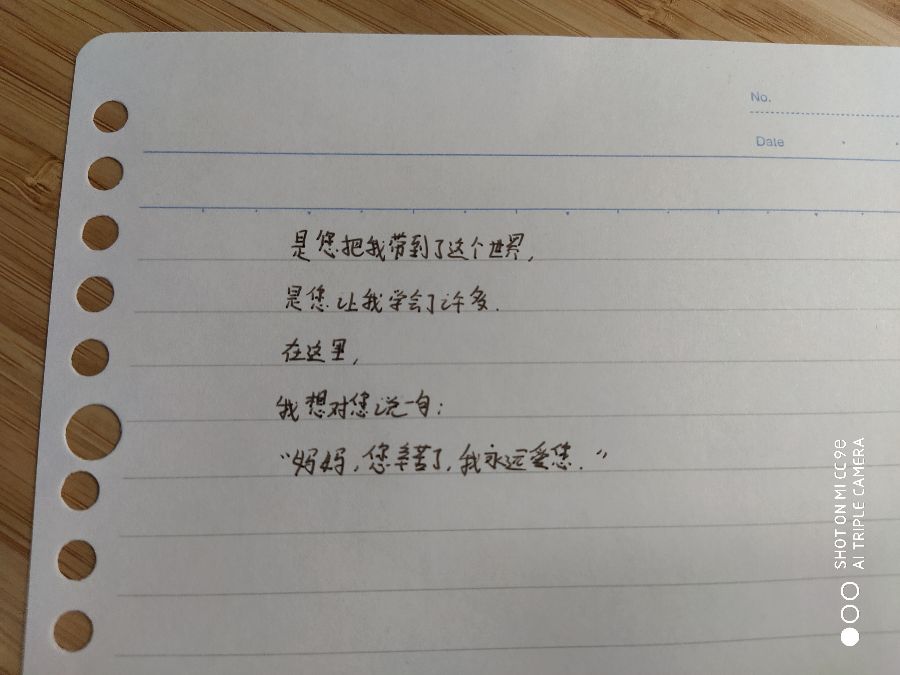 No.
Date
是您把我带到了这个世界,
是您让我学会了许多.
在这里,
我想对您说一句:
“妈妈,您辛苦了,我永远爱您.”
SHOT ON MI CC 9e
AI TRIPLE CAMERA